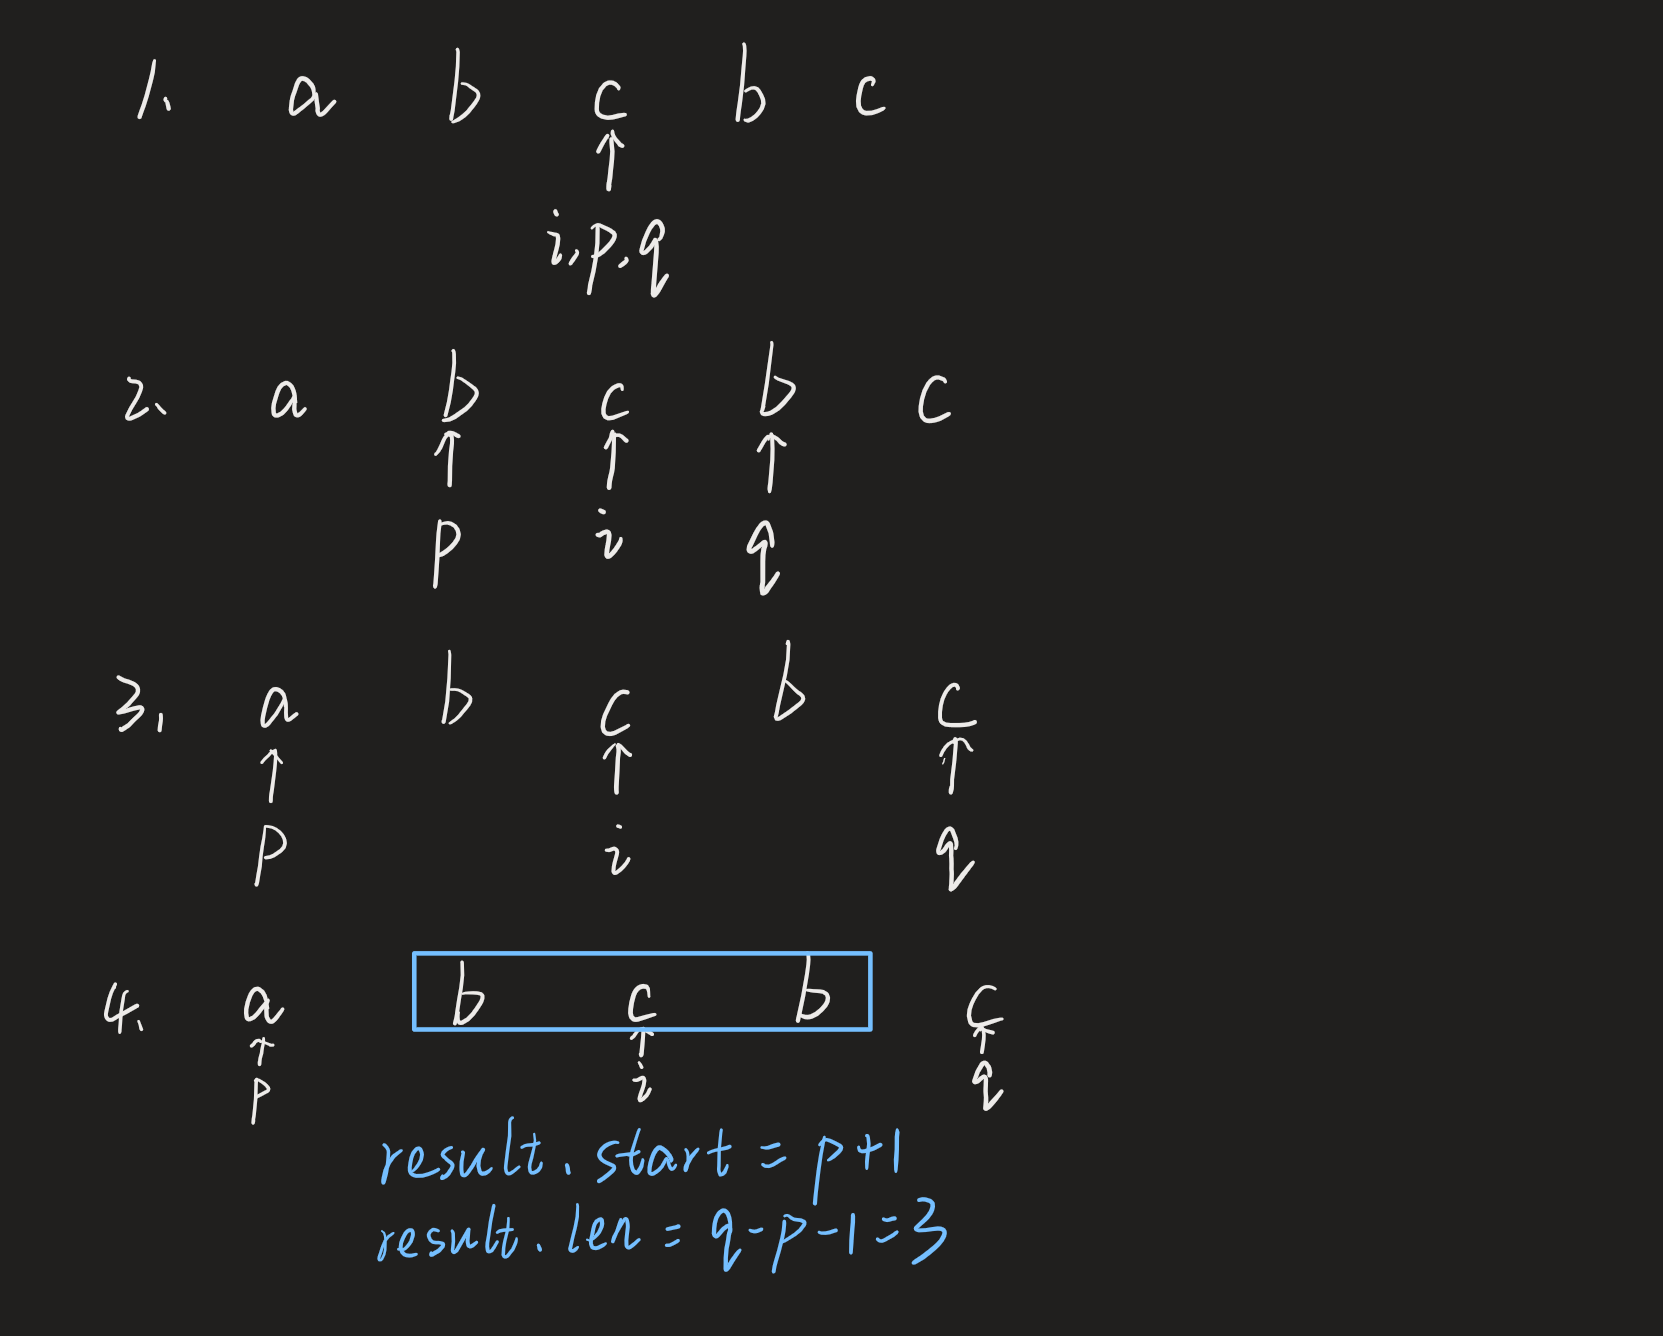 1、 a b c b c
↑
i,p,q
2、 a b c b c
↑ ↑ ↑
p i q
3、 a b c b c
↑ ↑ ↑
p i q
4、 a b c b c
↑ ↑ ↑
p i q
result.start = p+1
result.len = q-p-1=3